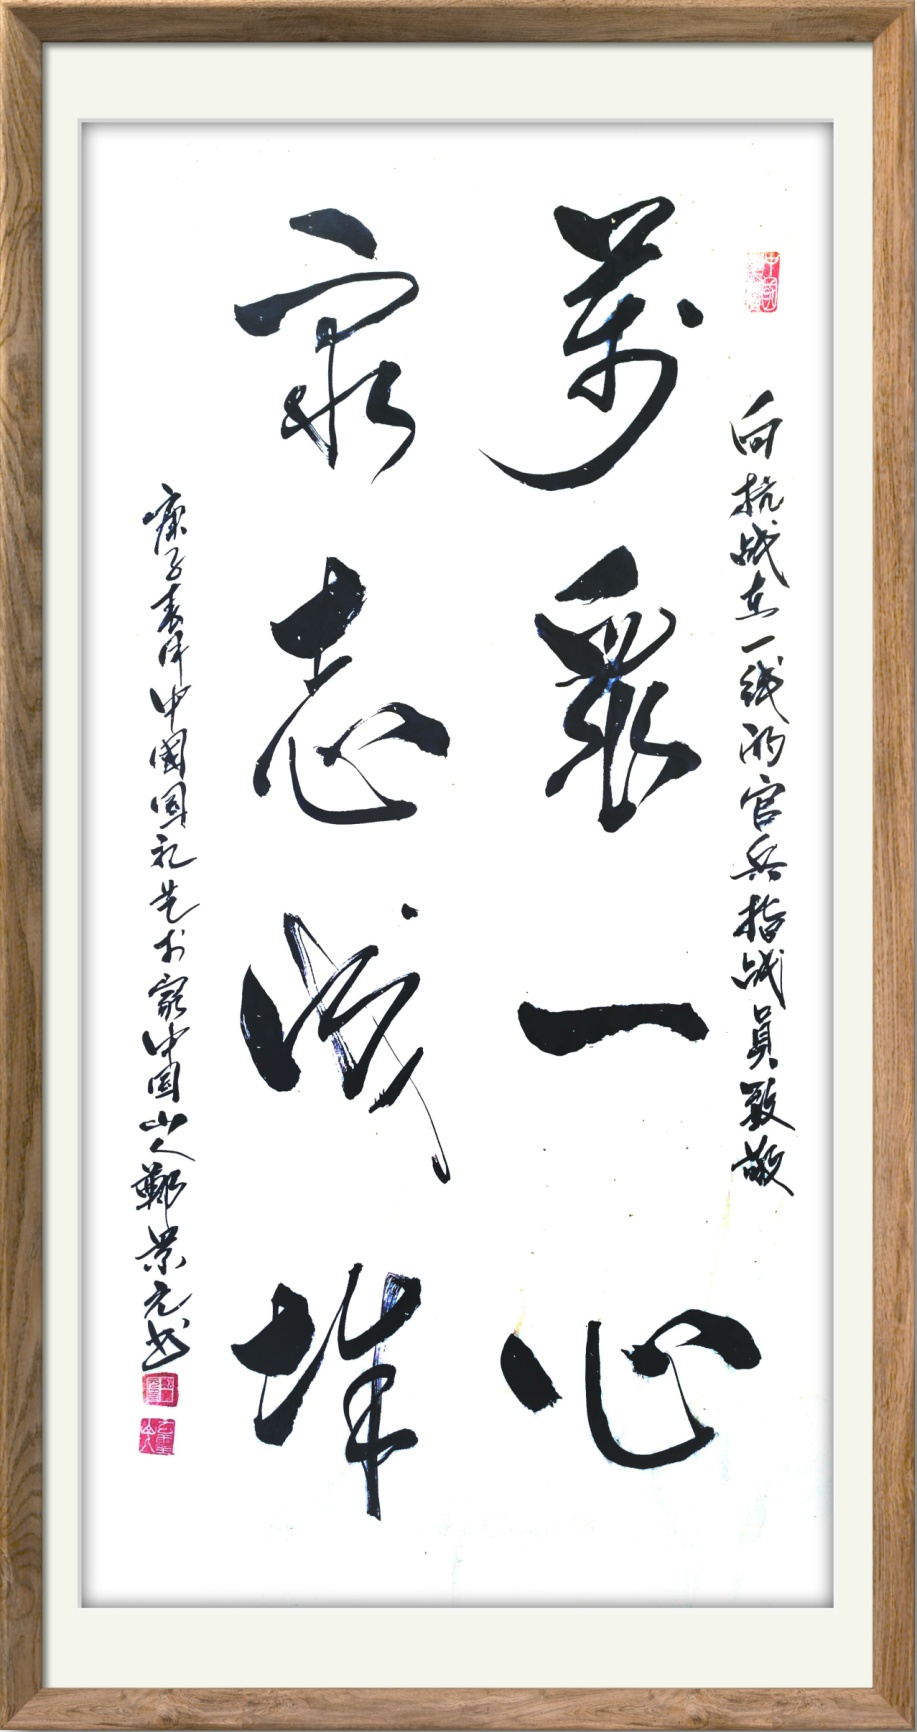 向抗战在一线的官兵指战員致敬
萬眾一心
眾志成城
庚子春中國国礼艺术家中国山人鄭景元书